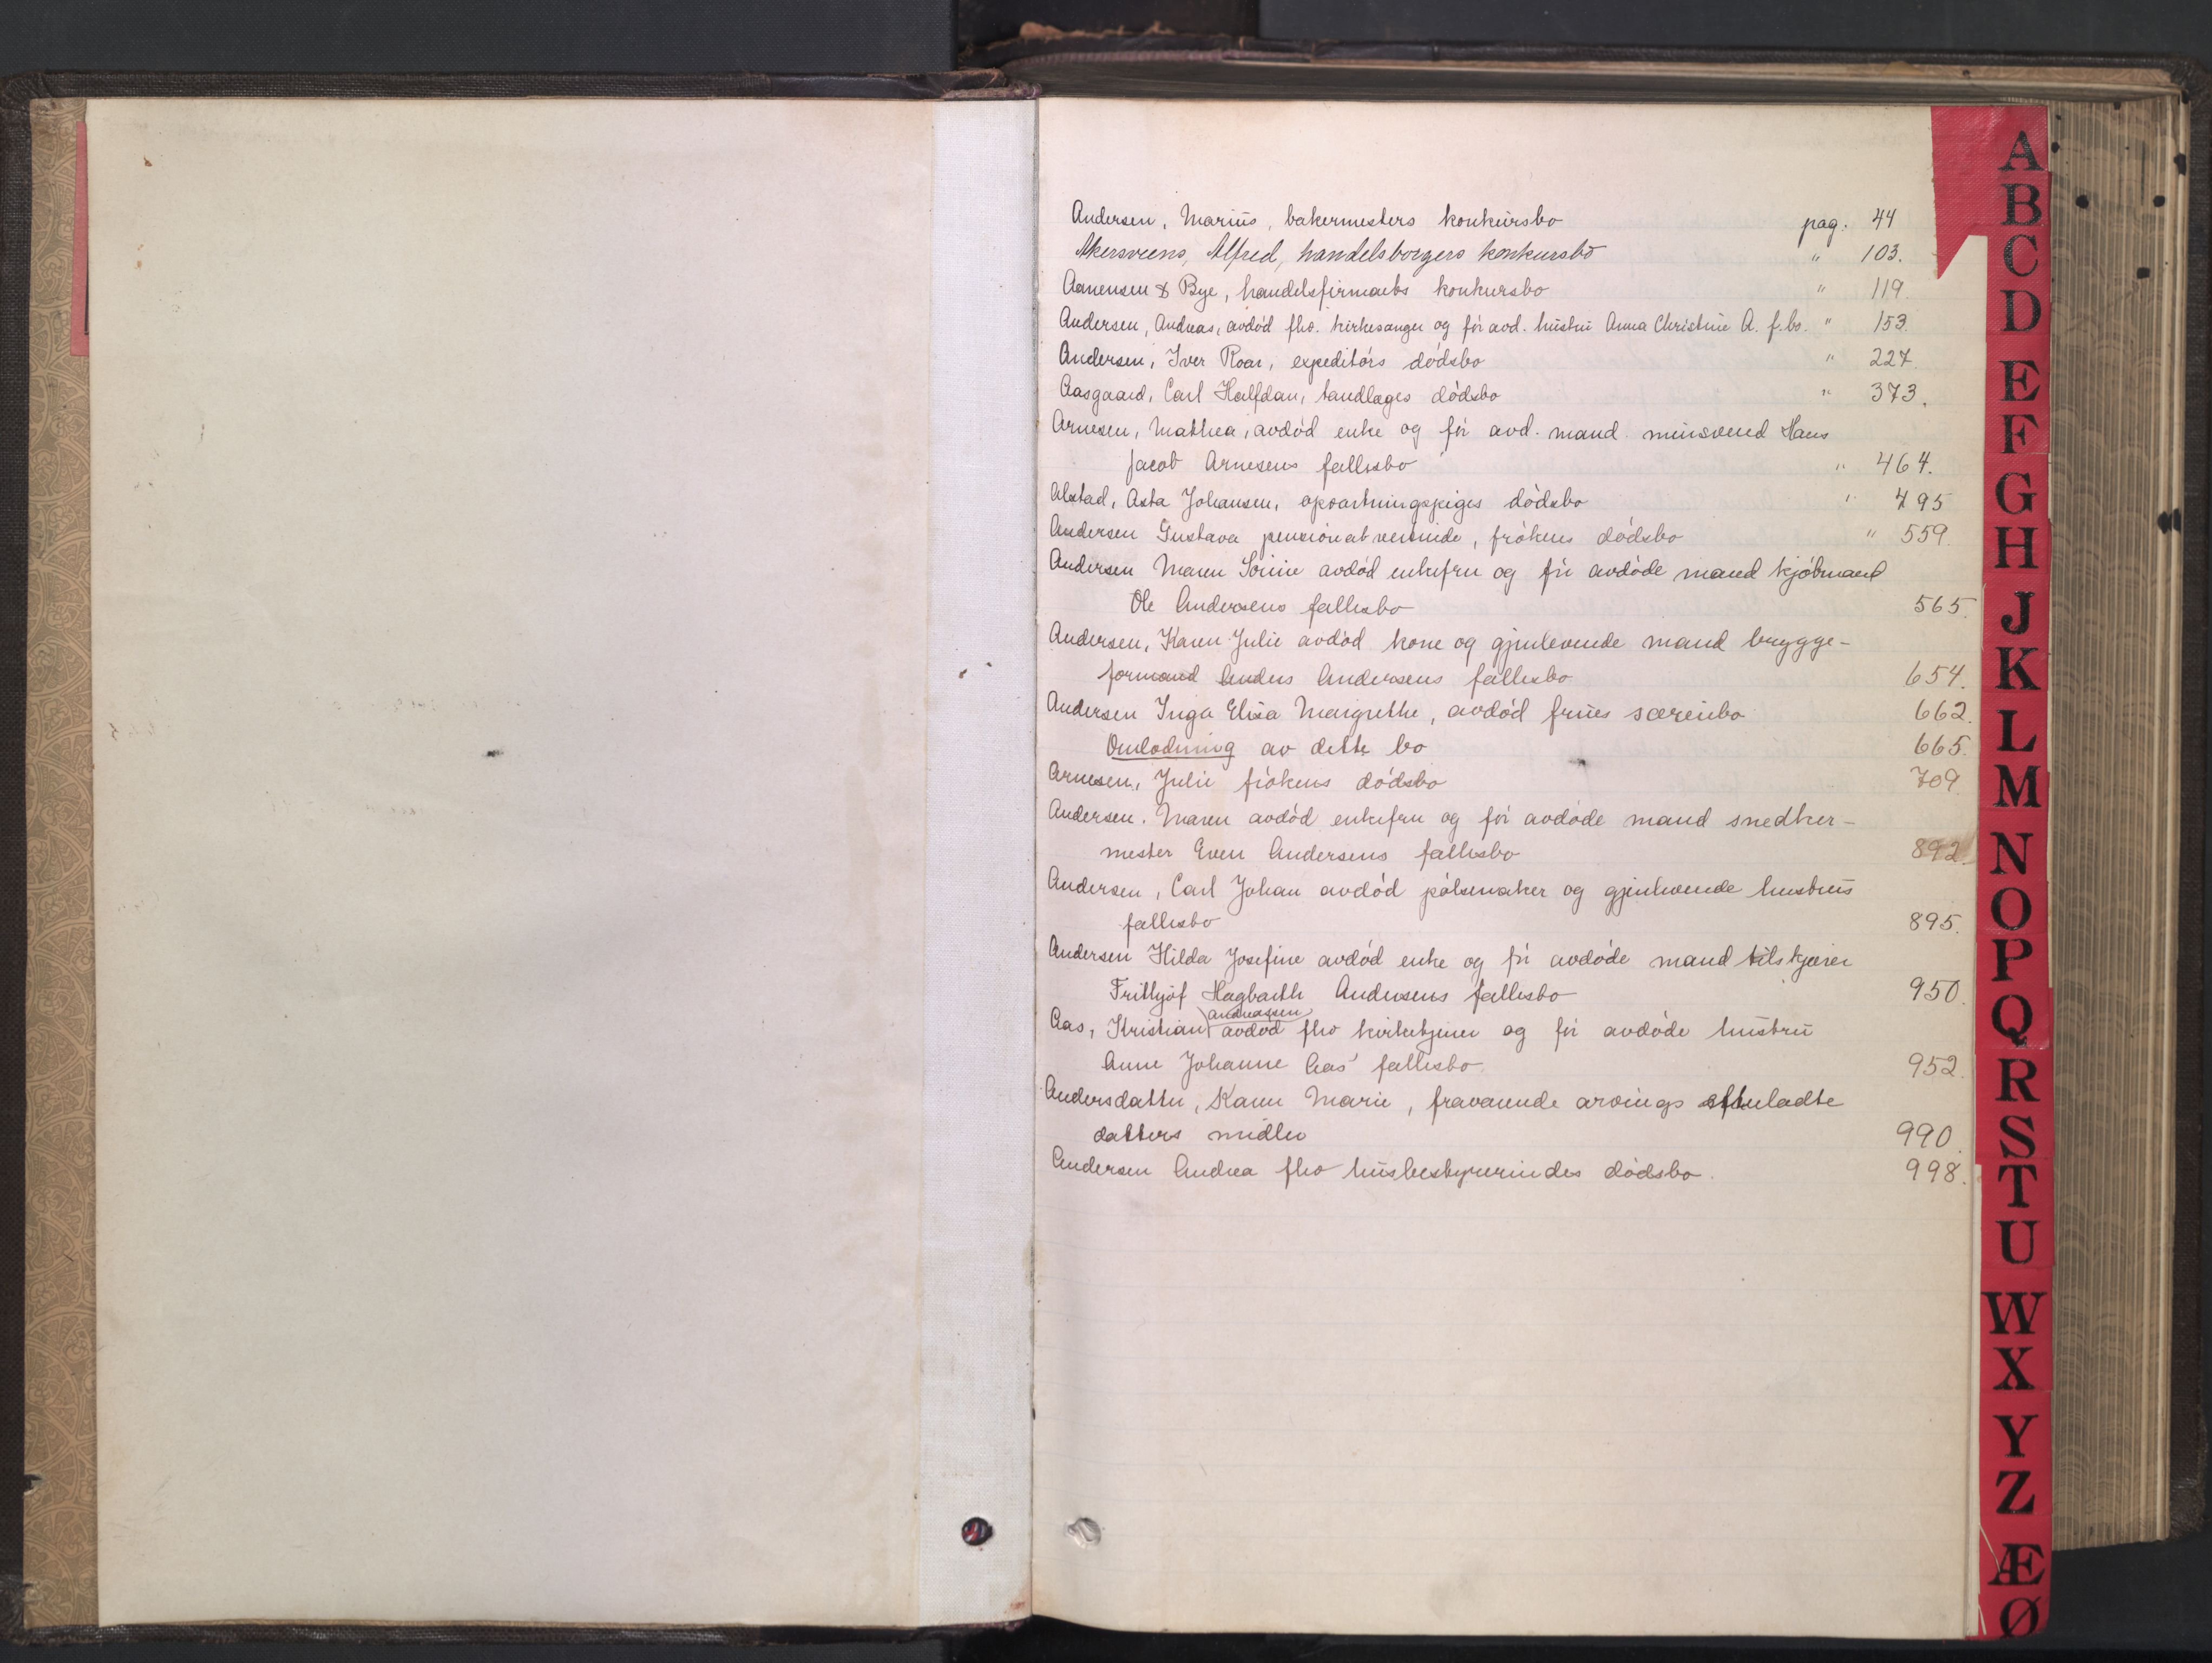 Andersen, Marius, bakermesters konkursbo pag. 44
Akersveens, Alfred, handelsborgers konkursbo " 103.
Aanensen & Bye, handelsfirmaets konkursbo " 119.
Andersen, Andreas, avdød fhv. kirkesanger og før avd. hustru Anna Christine A. f.bo. " 153.
Andersen, Iver Roar, expeditørs dødsbo " 227.
Aasgaard, Carl Halfdan, tandlæges dødsbo " 373.
Arnesen, Mathea, avdød enke og før avd. mand minsvend Hans
Jacob Arnesens fællesbo " 464.
Alstad, Asta Johansen, opvartningspiges dødsbo " 495
Andersen Gustava pensionatvertinde, frøkens dødsbo " 559.
Andersen Maren Sorine avdød enkefru og før avdøde mand kjøbmand
Ole Andersens fællesbo 565.
Andersen, Karen Julie avdød kone og gjenlevende mand brygge-
formand Anders Andersens fællesbo 654.
Andersen Inga Elisa Margrethe, avdød frues særeiebo 662.
Omlodning av dette bo 665.
Arnesen, Julie frøkens dødsbo 709
Andersen. Maren avdød enkefru og før avdøde mand snedker-
mester Even Andersens fællesbo 892.
Andersen, Carl Johan avdød pølsemaker og gjenlevende hustrus
fællesbo 895.
Andersen Hilda Josefine avdød enke og før avdøde mand tilskjærer
Frithjof Hagbarth Andersens fællesbo 950.
Andreassen
Aas, Kristian avdød fhv kirketjener og før avdøde hustru
Anne Johanne Aas' fællesbo 952.
Andersdatter, Karen Marie, fraværende arvings efterladte
datters midler 990.
Andersen Andrea fhv husbestyrerindes dødsbo. 998.
A
B
C
D
E
F
G
H
J
K
L
M
N
O
P
Q
R
S
T
U
W
X
Y
Z
Æ
Ø